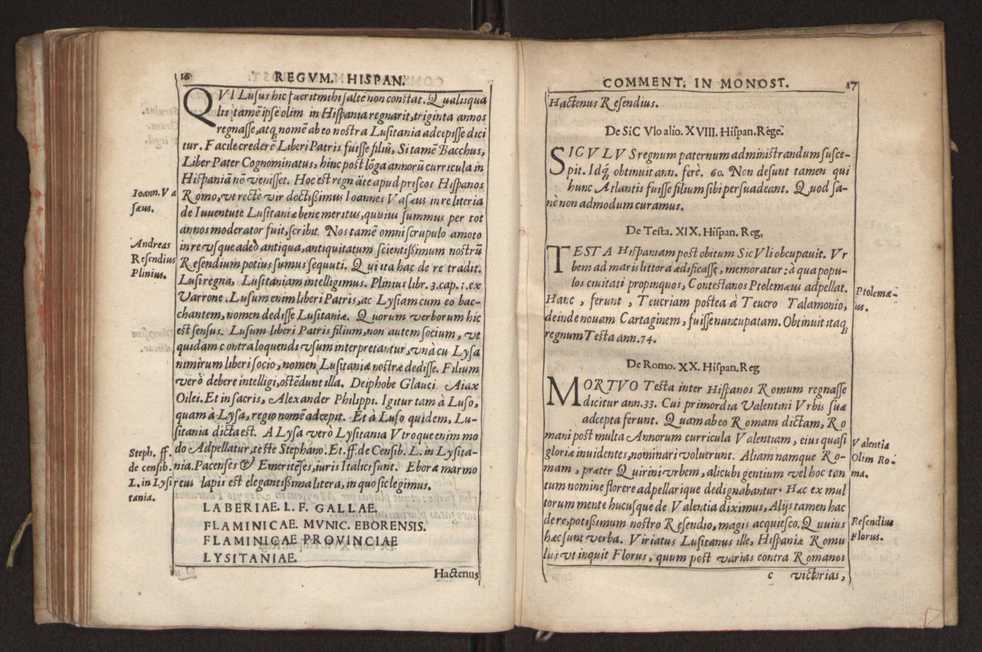 16 REGVM. HISPAN.
QVI Lusus hic fuerit mihi satte non constat. Qualisqua
lis tamē ipse olim in Hispania regnarit, triginta annos
regnasse, atq; nomē ab eo nostra Lusitania adcepisse dici
tur. Facile crederē Liberi Patris fuisse filiū, Si tamē Bacchus,
Liber Pater Cognominatus, hinc post lōga annorū curricula in
Hispaniā nō venisset. Hoc est regn āte apud priscos Hispanos
Ioann. Va
Rōmo, vt rectè vir doctissimus Ioannes Vasæus in re literia
sæus.
de Iuuentute Lusitaniæ bene meritus, quuius summus per tot
annos moderator fuit, scribit. Nos tamē omni scrupulo amoto
Andreas
in re vsque adeò antiqua, antiquitatum scientissimum nostrū
Resendius
Resendium potius sumus sequuti. Qui ita hac de re tradit.
Plinius.
Lusi regna, Lusitaniam intelligimus. Plinius libr. 3. cap. 1. ex
Varrone. Lusum enim liberi Patris, ac Lysiam cum eo bac-
chantem, nomen dedisse Lusitaniæ. Quorum verborum hic
est sensus. Lusum liberi Patris filium, non autem socium, vt
quidam contra loquendi vsum interpretantur, vnà cu Lysa
nimirum liberi socio, nomen Lusitaniæ nostræ dedisse. Filium
verò debere intelligi, ostēdunt illa. Deiphobe Glauci. Aiax
Oilei. Et in sacris, Alexander Philippi. Igitur tam à Luso,
quam à Lysa, regio nomē adcepit. Et à Luso quidem, Lu-
sitania dicta est. A Lysa verò Lysitania Vtroque enim mo
Steph. ff.
do Adpellatur, teste Stephano. Et. ff. de Censib. L. in Lysita-
de censib.
nia. Pacenses & Emeritēses, iuris Italici sunt. Eboræ marmo
L. in Lysi
reus lapis est elegantissima litera, in quo sic legimus.
tania.
LABERIAE. L. F. GALLAE.
FLAMINICAE. MVNIC. EBORENSIS.
FLAMINICAE PROVINCIAE
LYSITANIAE.
Hactenus
COMMENT. IN MONOST. 17
Hactenus Resendius.
De SiC Vlo alio. XVIII. Hispan. Rege.
SICVLVS regnum paternum administrandum susce-
pit. Idq; obtinuit ann. ferè. 60. Non desunt tamen qui
hunc Atlantis fuisse filium sibi persuadeant. Quod sa-
nè non admodum curamus.
De Testa. XIX. Hispan. Reg,
TESTA Hispaniam post obitum SicVli obcupauit. Vr
bem ad maris littora ædificasse, memoratur: à qua popu-
los ciuitati propinquos, Contestanos Ptolemæus adpellat.
Ptolemæ-
us.
Hanc, ferunt, Teucriam postea à Teucro Talamonio,
deinde nouam Cartaginem, fuisse nuncupatam. Obtinuit itaq;
regnum Testa ann. 74.
De Romo. XX. Hispan. Reg
MORTVO Testa inter Hispanos Romum regnasse
dicitur ann. 33. Cui primordia Valentini Vrbis suæ
adcepta ferunt. Quam ab eo Romam dictam, Ro
mani post multa Annorum curricula Valentiam, eius quasi
Valentia
gloriæ inuidentes, nominari voluerunt. Aliam namque Ro-
Olim Ro
mam, præter Quirini vrbem, alicubi gentium vel hoc tan
ma.
tum nomine florere adpellarique dedignabantur. Hac ex mul
torum mente hucusque de Valentia diximus, Alijs tamen hac
de re, potissimum nostro Resendio, magis acquiesco. Quuius
Resendius
hæc sunt verba. Viriatus Lusitanus ille, Hispaniæ Romu
Florus.
lus, vt inquit Florus, quum post varias contra Romanos
c victorias,